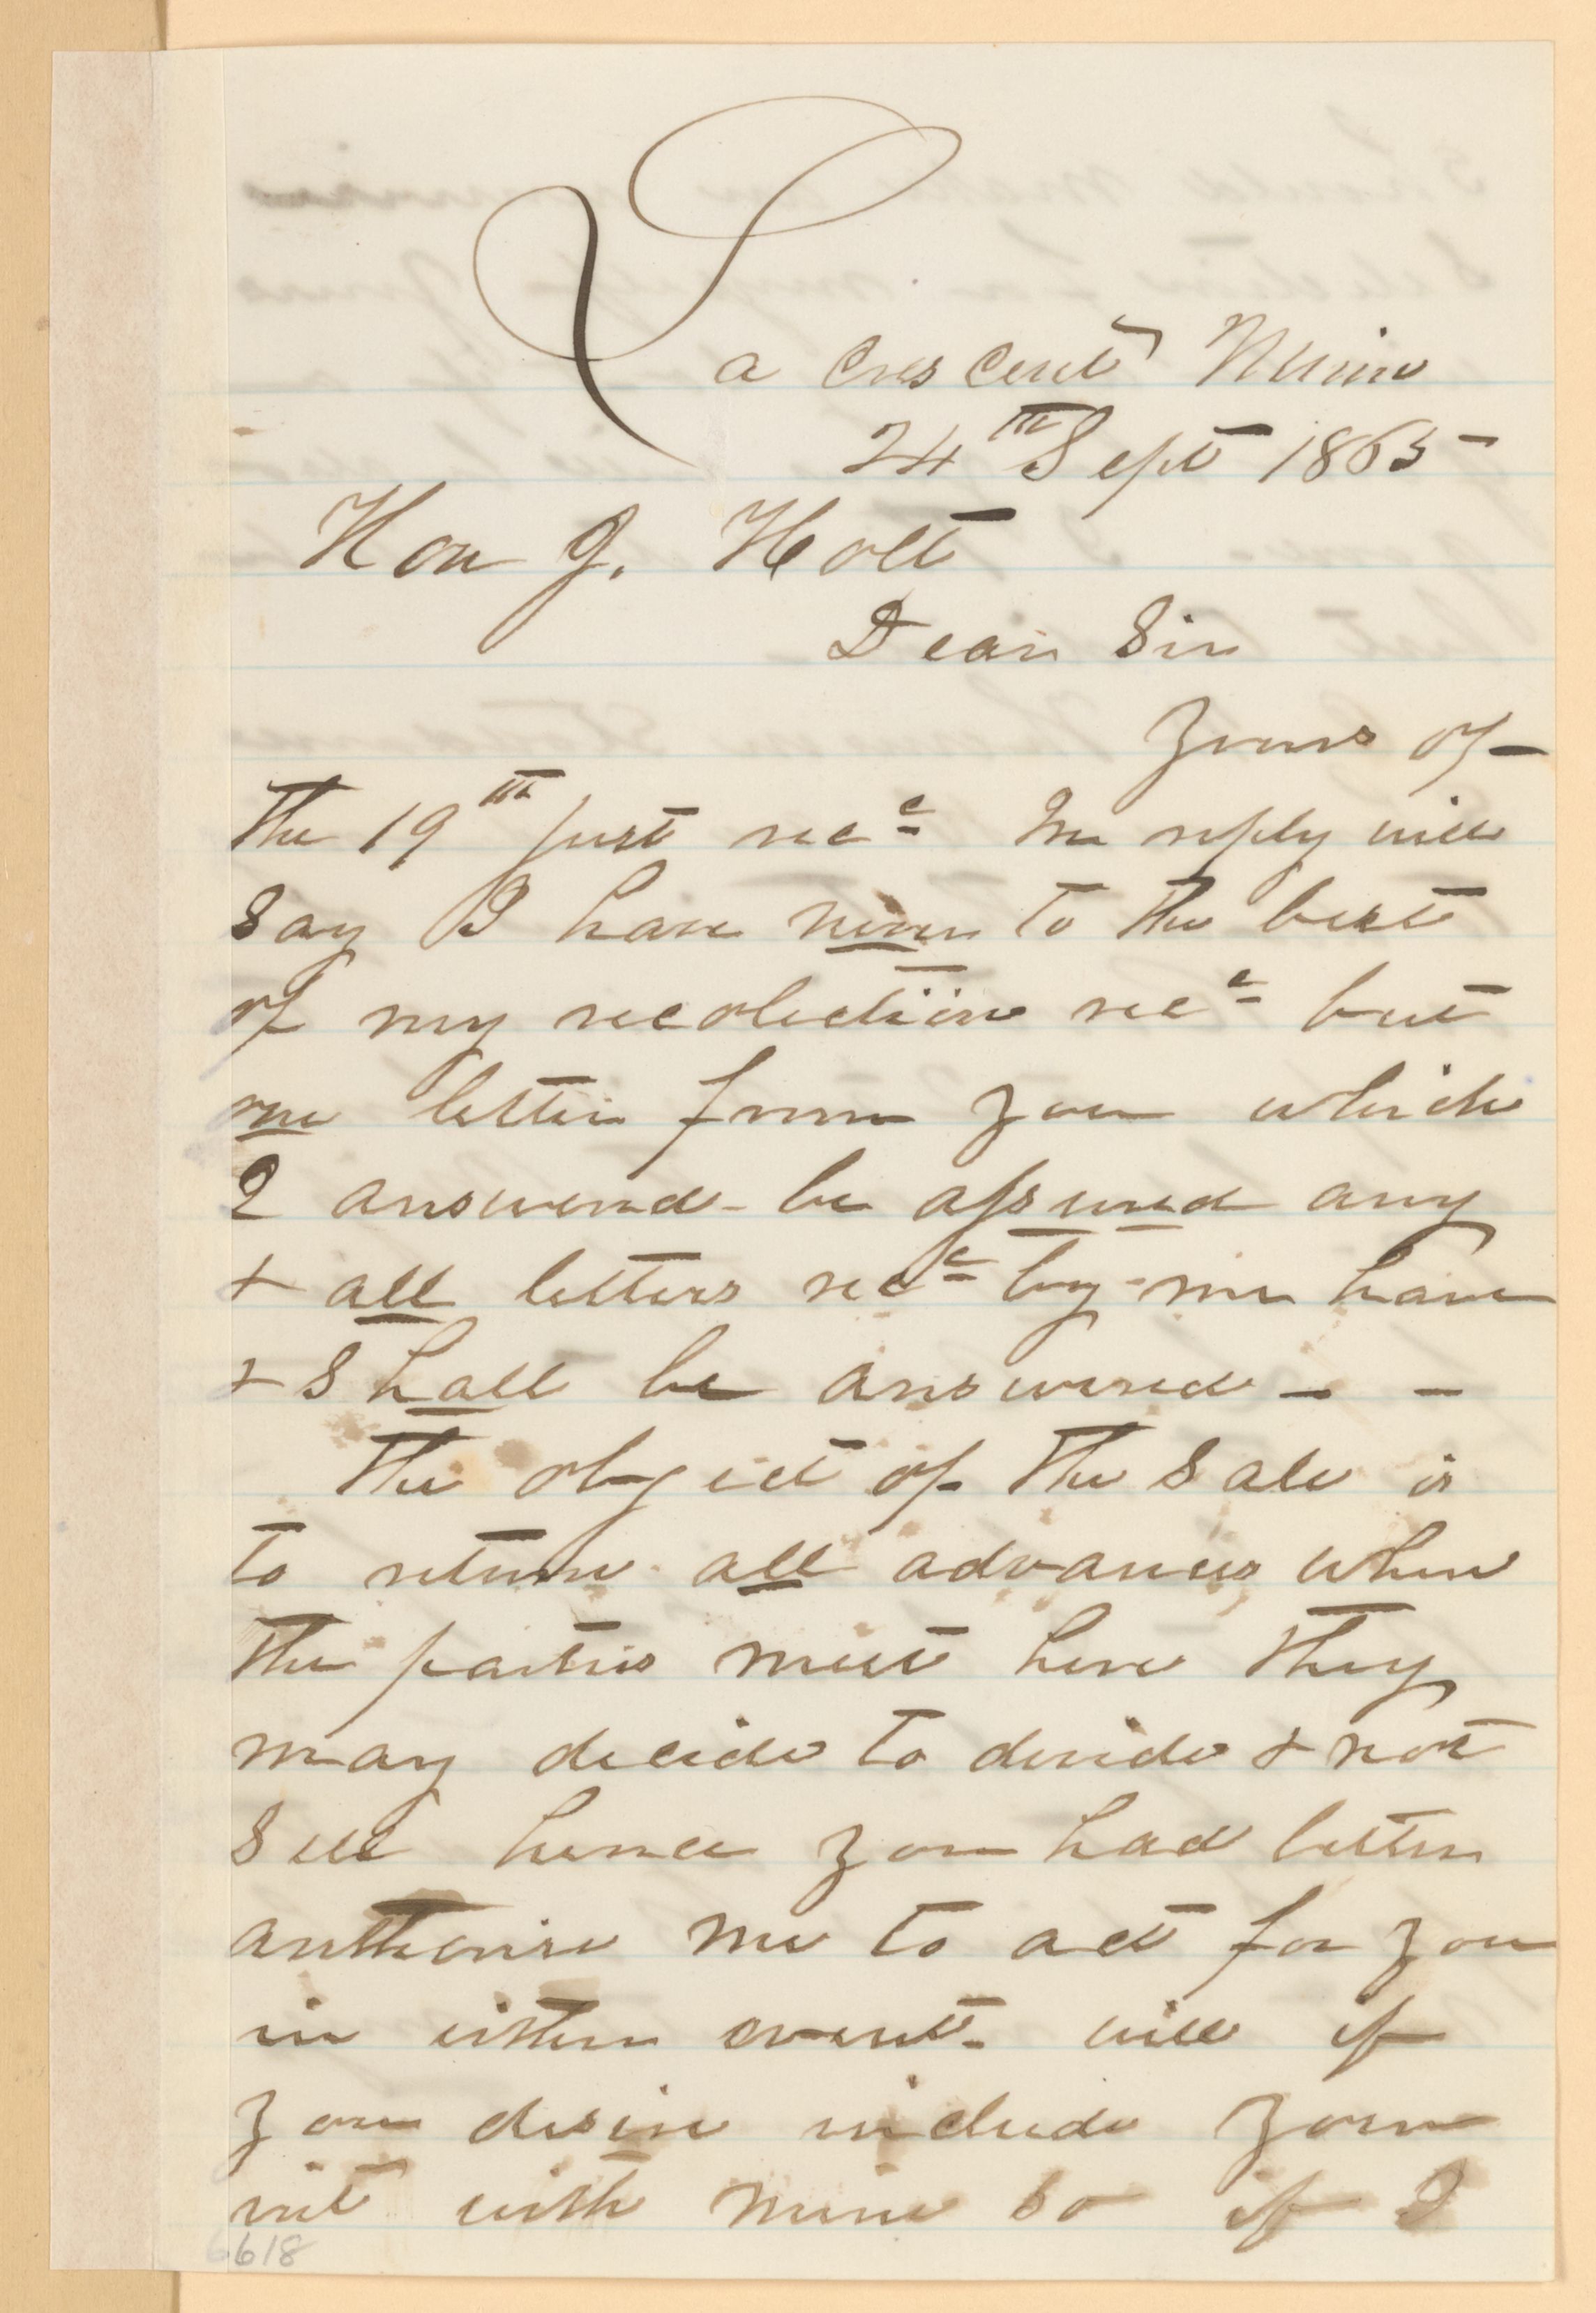 La Crescent Minn
24th Sept 1865
Hon J. Holt
Dear Sir
Yours of
the 19th just recd In reply will
say I have never to the best
of my recolection recd but
one letter from you which
I answered - be assured any
+ all letters recd by me have
+ shall be answered - -
The object of the sale is
to return all advances when
the parties meet here they
may decide to devide + not
sell hence you had better
authorise me to act for you
in either event - will if
you desire include your
int with mine so if I
6618